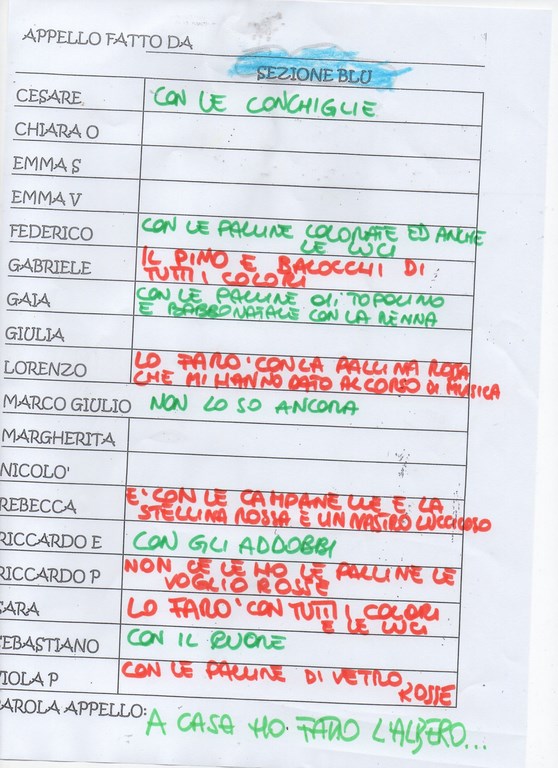 APPELLO FATTO DA
SEZIONE BLU
CESARE CON LE CONCHIGLIE
CHIARA O
EMMA S
EMMA V
FEDERICO CON LE PALLINE COLORATE ED ANCHE
LE LUCI
GABRIELE IL PINO E BALOCCHI DI
TUTTI I COLORI
GAIA CON LE PALLINE DI TOPOLINO
E BABBONATALE CON LA RENNA
GIULIA
LORENZO LO FARO' CON LA PALLINA ROSSA
CHE MI HANNO DATO AL CORSO DI MUSICA
MARCO GIULIO NON LO SO ANCORA
MARGHERITA
NICOLO'
REBECCA E' CON LE CAMPANELLE E LA
STELLINA ROSSA E UN NASTRO LUCCICOSO
RICCARDO E CON GLI ADDOBBI
RICCARDO P NON CE LE HO LE PALLINE LE
VOGLIO ROSSE
SARA LO FARO' CON TUTTI I COLORI
E LE LUCI
SEBASTIANO CON IL CUORE
VIOLA P CON LE PALLINE DI VETRO
ROSSE
PAROLA APPELLO: A CASA HO FATTO L'ALBERO...